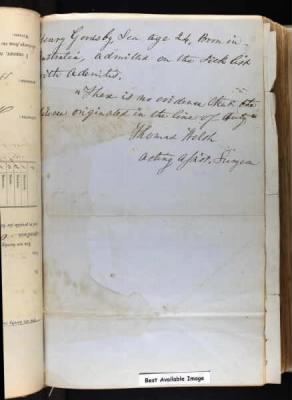 Henry Gondsby Sea age 24, Born in
Australia, admitted on the Sick list
with Adenitis.
"There is no evidence that the
disease originated in the line of duty"
Thomas Welsh
Acting Asst. Surgeon
Best Available Image